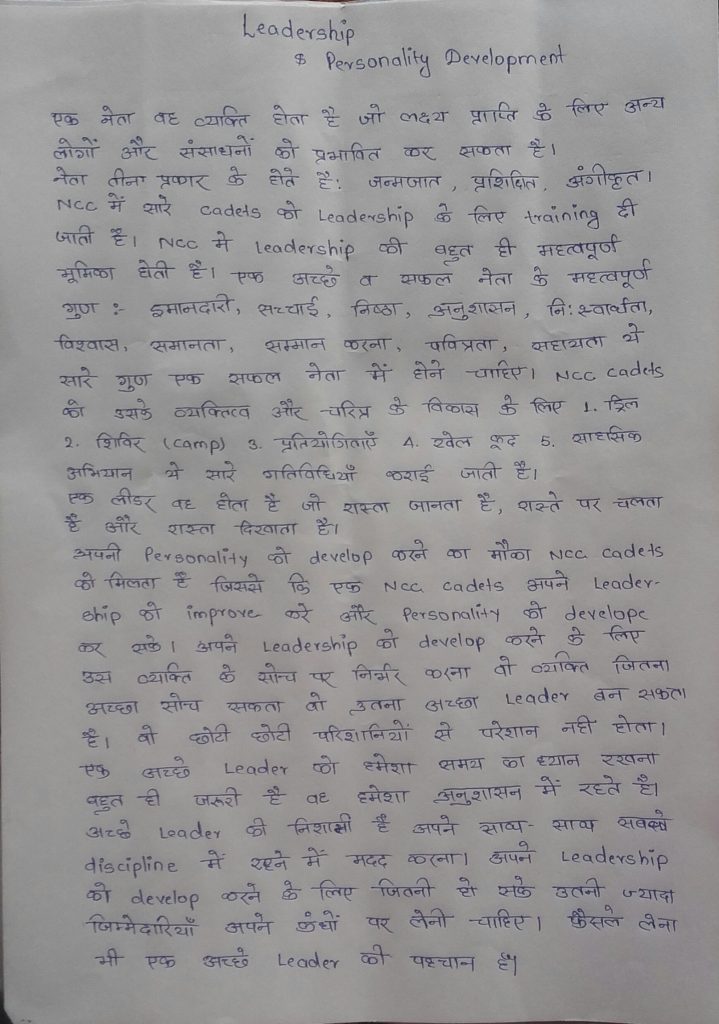 Leadership
$ Personality Development
एक नेता वह व्यक्ति होता है जो लक्ष्य प्राप्ति के लिए अन्य
लोगों और संसाधनों को प्रभावित कर सकता है।
नेता तीना प्रकार के होते हैं: जन्मजात, प्रशिक्षित, अंगीकृत।
NCC में सारे cadets को Leadership के लिए training दी
जाती है। NCC मे Leadership की बहुत ही महत्वपूर्ण
भूमिका होती है। एक अच्छे व सफल नेता के महत्वपूर्ण
गुण :- इमानदारी, सच्चाई, निष्ठा, अनुशासन, नि:स्वार्थता,
विश्वास, समानता, सम्मान करना, पवित्रता, सहायता ये
सारे गुण एक सफल नेता में होने चाहिए। NCC cadets
को उसके व्यक्तित्व और चरित्र के विकास के लिए 1. ड्रिल
2. शिविर (camp) 3. प्रतियोगिताएँ 4. खेल कूद 5. साहसिक
अभियान ये सारे गतिविधियाँ कराई जाती है।
एक लीडर वह होता है जो रास्ता जानता है, रास्ते पर चलता
है और रास्ता दिखाता है।
अपनी Personality को develop करने का मौका NCC cadets
को मिलता है जिससे कि एक NCC cadets अपने Leader-
ship को improve करे और Personality को develope
कर सके। अपने Leadership को develop करने के लिए
उस व्यक्ति के सोच पर निर्भर करना वो व्यक्ति जितना
अच्छा सोच सकता वो उतना अच्छा Leader बन सकता
है। वो छोटी छोटी परिशानियों से परेशान नही होता।
एक अच्छे Leader को हमेशा समय का ध्यान रखना
बहुत ही जरूरी है वह हमेशा अनुशासन में रहते है।
अच्छे Leader की निशानी है अपने साथ-साथ सबको
discipline में रहने में मदद करना। अपने Leadership
को develop करने के लिए जितनी हो सके उतनी ज्यादा
जिम्मेदारियाँ अपने कंधों पर लेनी चाहिए। फैसले लेना
भी एक अच्छे Leader की पहचान है।